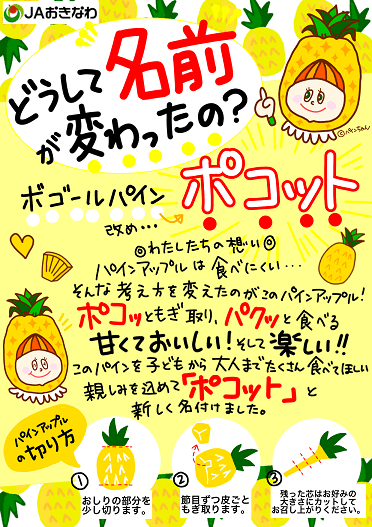 JAおきなわ
どうして名前
が変わったの?
©パインちゃん
ボゴールパイン
改め…
ポコット
◎わたしたちの想い◎
パインアップルは食べにくい…
そんな考え方を変えたのがこのパインアップル!
ポコッともぎ取り、パクッと食べる
甘くておいしい!そして楽しい!!
このパインを子どもから大人までたくさん食べてほしい
親しみを込めて「ポコット」と
新しく名付けました。
パインアップル
の切り方
①
おしりの部分を
少し切ります。
②
節目ずつ皮ごと
もぎ取ります。
③
残った芯はお好みの
大きさにカットして
お召し上がりください。